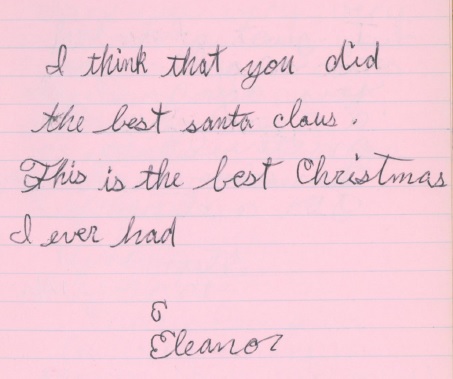 I think that you did
the best santa claus.
This is the best Christmas
I ever had
E
Eleanor